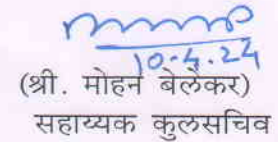 10.4.24
(श्री. मोहन बेलेकर)
सहाय्यक कुलसचिव